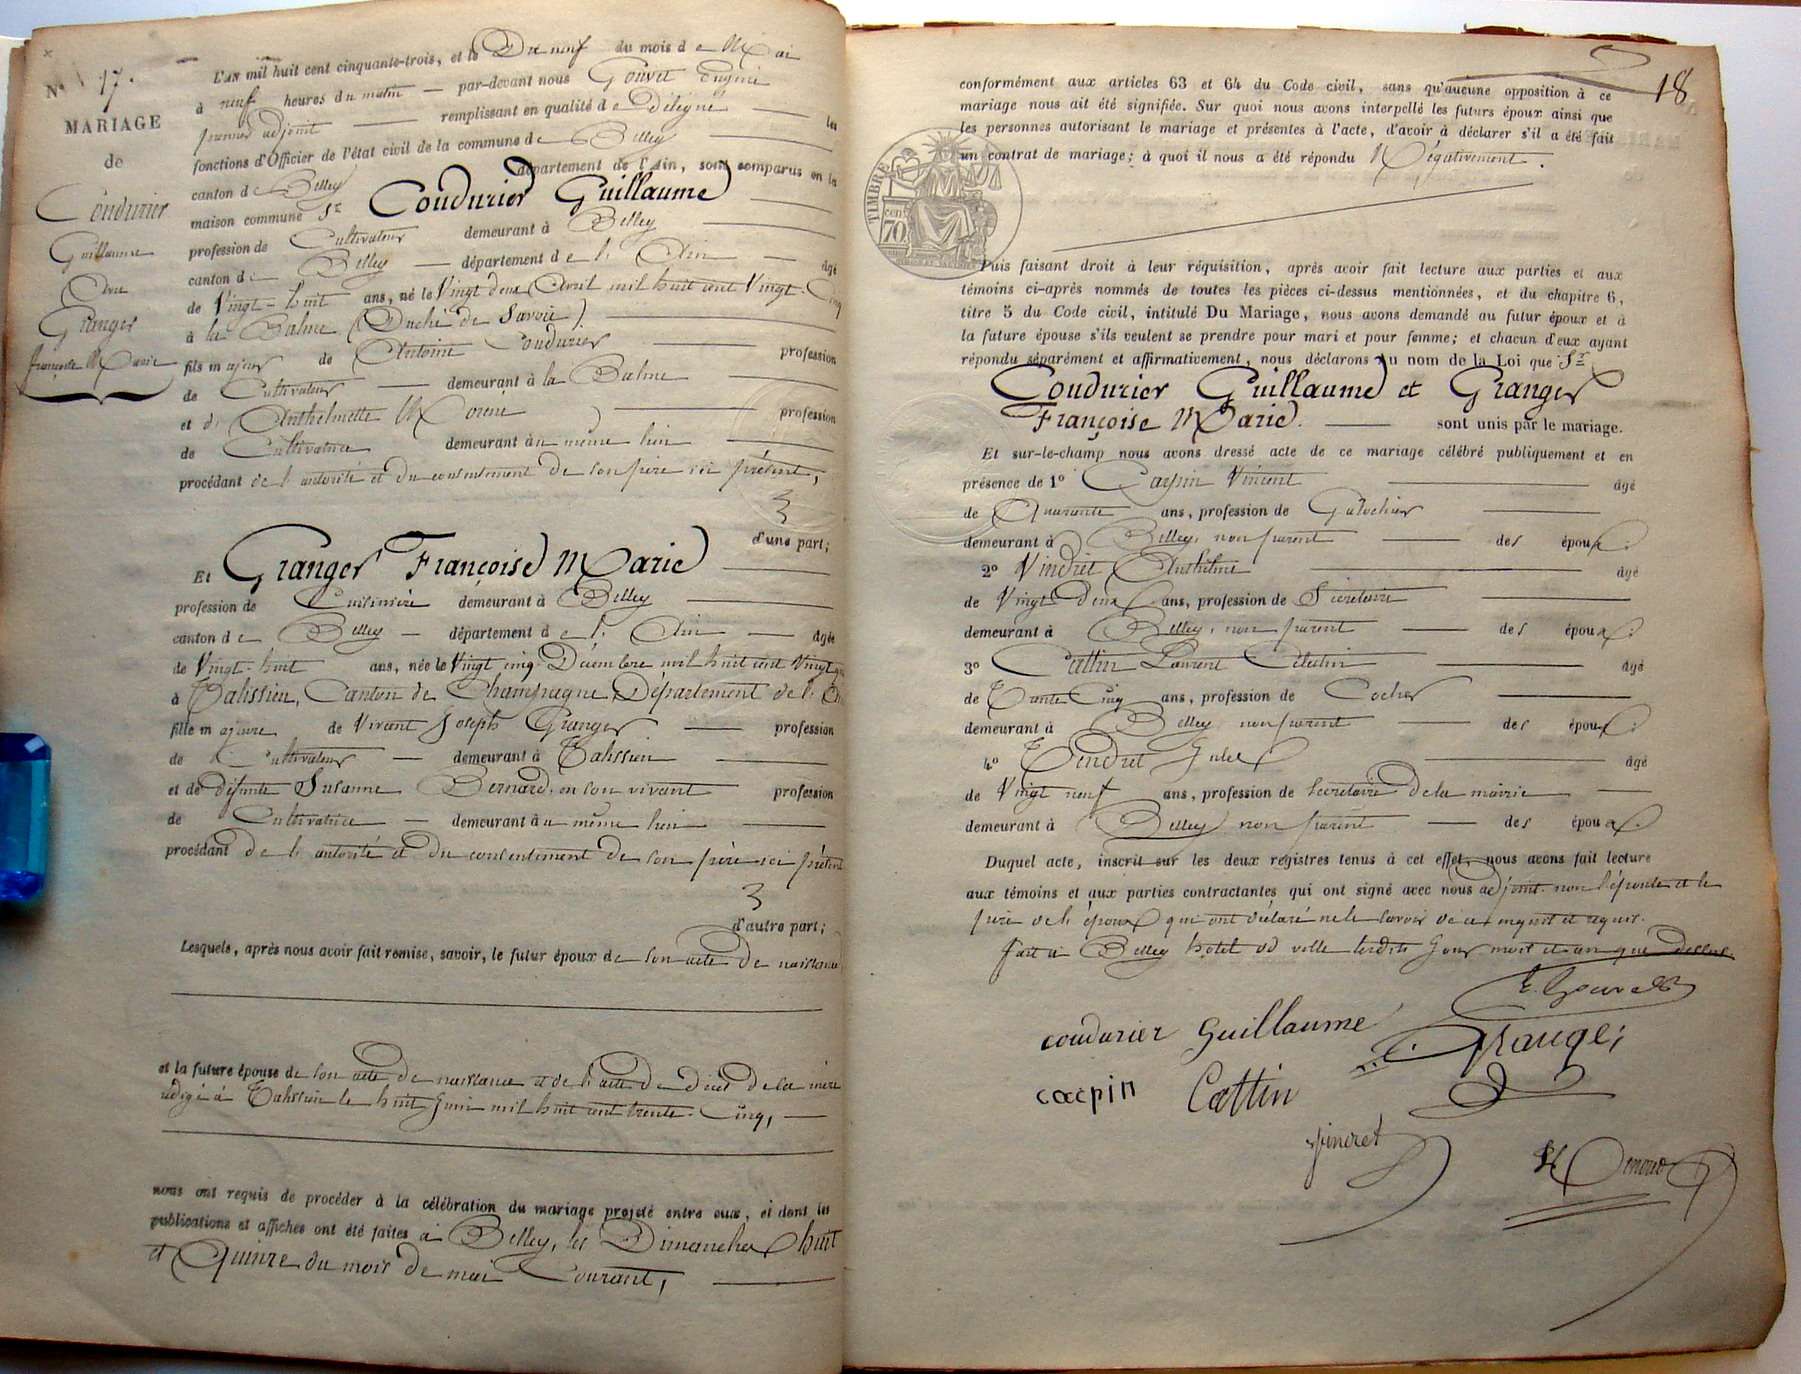 N° 17.
MARIAGE
de
Coudurier
Guillaume
Avec
Granger
Françoise Marie
L'AN mil huit cent cinquante-trois, et le Dix neuf du mois de Mai
à neuf heures du matin par-devant nous Gouvet Eugène
premier adjoint remplissant en qualité de Délégué les
fonctions d'Officier de l'état civil de la commune de Belley
canton de Belley département de l'Ain, sont comparus en la
maison commune Sr Coudurier Guillaume
profession de Cultivateur demeurant à Belley
canton de Belley département de l'Ain âgé
de Vingt-huit ans, né le Vingt deux Avril mil huit cent Vingt-Cinq
à la Balme (Duché de Savoie)
fils majeur de Antoine Coudurier profession
de Cultivateur demeurant à la Balme
et d'Anthelmette profession
de Cultivatrice demeurant au même lieu
procédant de l'autorité et du consentement de son père ici présent,
d'une part;
Et Granger Françoise Marie
profession de Cuisinière demeurant à Belley
canton de Belley département de l'Ain âgée
de Vingt-huit ans, née le Vingt cinq Décembre mil huit cent Vingt
à Talissieu, Canton de Champagne, Département de l'Ain
fille majeure de Vincent Joseph Granger profession
de Cultivateur demeurant à Talissieu
et de défunte Susanne Bernard, en son vivant profession
de Cultivatrice demeurant au même lieu
procédant de l'autorité et du consentement de son père ici présent
d'autre part;
Lesquels, après nous avoir fait remise, savoir, le futur époux de son acte de naissance
et la future épouse de son acte de naissance et de l'acte de décès de sa mère
rédigé à Talissieu le huit Juin mil huit cent trente-Cinq,
nous ont requis de procéder à la célébration du mariage projeté entre eux, et dont les
publications et affiches ont été faites à Belley, les Dimanches huit
et Quinze du mois de mai Courant,
18
conformément aux articles 63 et 64 du Code civil, sans qu'aucune opposition à ce
mariage nous ait été signifiée. Sur quoi nous avons interpellé les futurs époux ainsi que
les personnes autorisant le mariage et présentes à l'acte, d'avoir à déclarer s'il a été fait
un contrat de mariage; à quoi il nous a été répondu Négativement.
TIMBRE
70
Puis faisant droit à leur réquisition, après avoir fait lecture aux parties et aux
témoins ci-après nommés de toutes les pièces ci-dessus mentionnées, et du chapitre 6,
titre 5 du Code civil, intitulé Du Mariage, nous avons demandé au futur époux et à
la future épouse s'ils veulent se prendre pour mari et pour femme; et chacun d'eux ayant
répondu séparément et affirmativement, nous déclarons au nom de la Loi que Sr
Coudurier Guillaume et Granger
Françoise Marie. sont unis par le mariage.
Et sur-le-champ nous avons dressé acte de ce mariage célébré publiquement et en
présence de 1° Carpin Vincent âgé
de Quarante ans, profession de Galochier
demeurant à Belley, non parent des époux.
2° Vindret Anthelme âgé
de Vingt Deux ans, profession de Secrétaire
demeurant à Belley, non parent des époux.
3° Cattin Laurent Célestin âgé
de Trente Cinq ans, profession de Cocher
demeurant à Belley non parent des époux.
4° Tendret Jules âgé
de Vingt neuf ans, profession de Secrétaire de la mairie
demeurant à Belley non parent des époux.
Duquel acte, inscrit sur les deux registres tenus à cet effet, nous avons fait lecture
aux témoins et aux parties contractantes qui ont signé avec nous adjoint. non l'épouse et le
père de l'époux qui ont déclaré ne le savoir de ce enquis et requis.
fait à Belley hôtel de ville lesdits Jour mois et an que dessus.
E. Gouvet
coudurier Guillaume
Granger
carpin Cattin